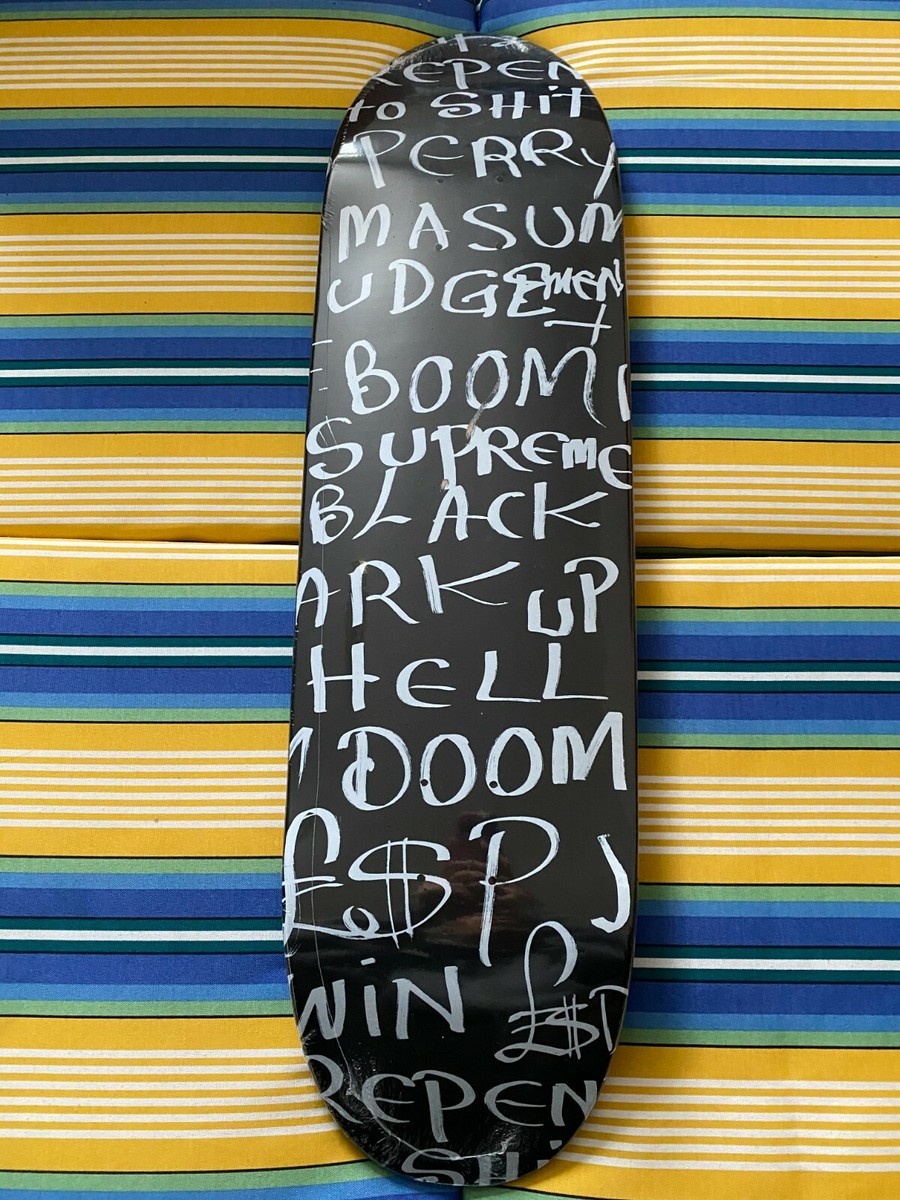 REPEN
to SHit
PERRY
MASUM
UDGEmEN
t
BOOM
SUPREmE
BLACK
ARK UP
HELL
DOOM
£$P J
WiN £$P
REPEN
SHi